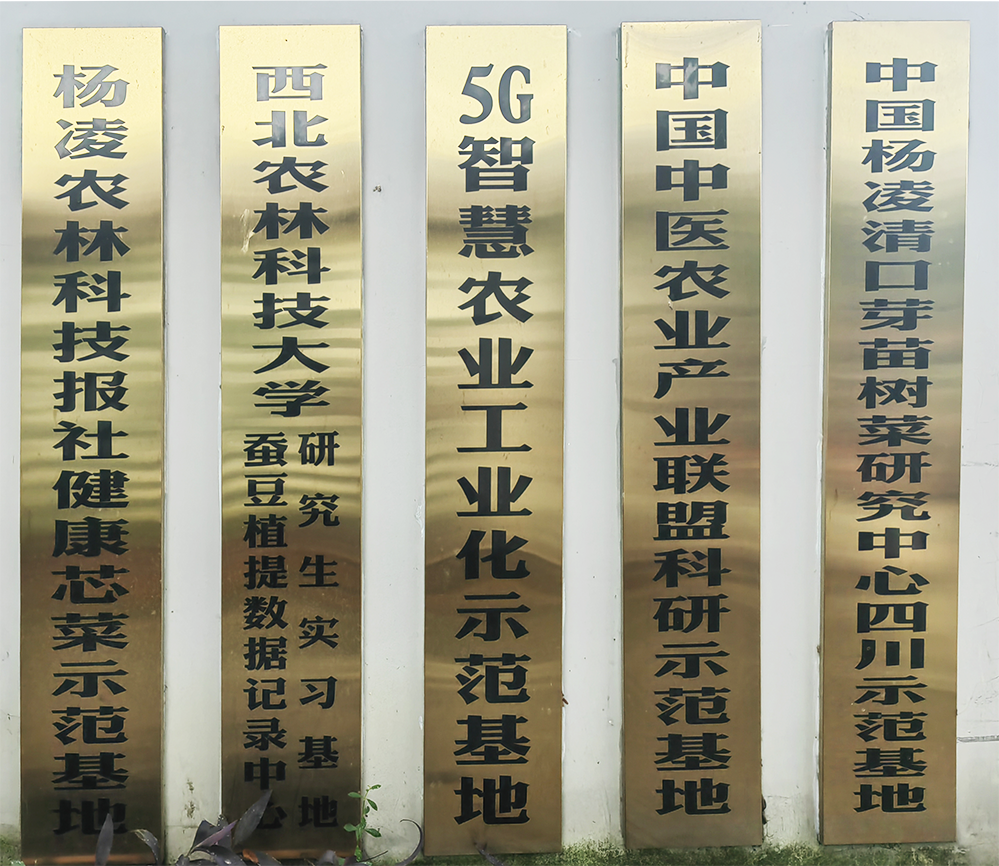 杨凌农林科技报社健康芯菜示范基地
西北农林科技大学
研究生实习基地
蚕豆植提数据记录中心
5G智慧农业工业化示范基地
中国中医农业产业联盟科研示范基地
中国杨凌清口芽苗树菜研究中心四川示范基地